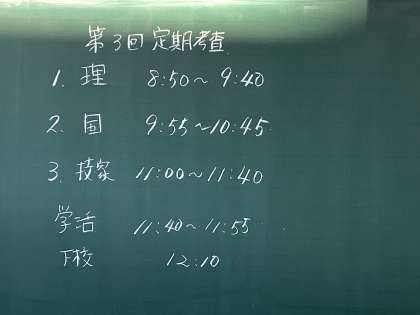 第3回定期考査
1. 理 8:50～9:40
2. 国 9:55～10:45
3. 技家 11:00～11:40
学活 11:40～11:55
下校 12:10